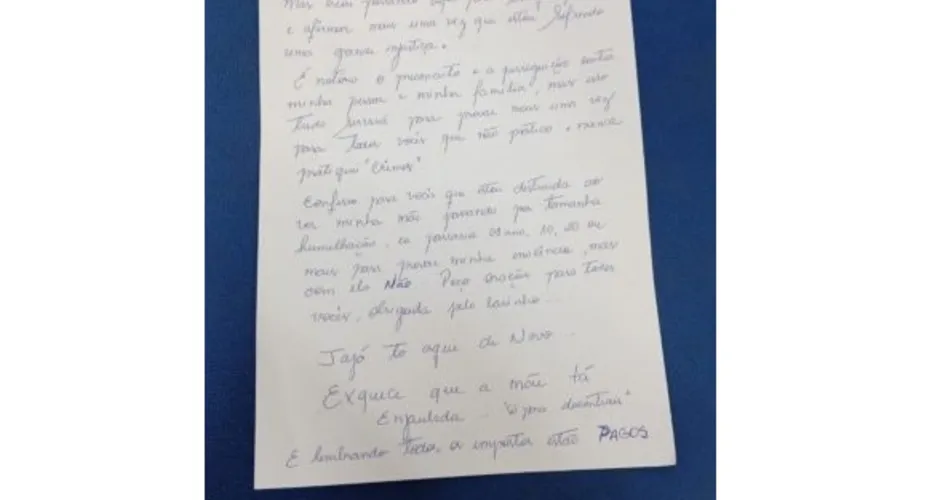 Mas bem
e afirmar mais uma vez que estou sofrendo
uma grande injustiça.
É notório o preconceito e a perseguição contra
minha pessoa e minha família, mas isso
tudo servirá para provar mais uma vez
para todos vocês que não pratico e nunca
pratiquei "crimes"
Confesso para vocês que estou destruída ao
ver minha mãe passando por tamanha
humilhação, eu passaria 01 ano, 10, 20 ou
mais para provar minha inocência, mas
com ela Não. Peço oração para todos
vocês, obrigada pelo carinho...
Jajá to aqui de Novo...
Exquece que a mãe tá
Enjaulada
E lembrando todos os impostos estão PAGOS